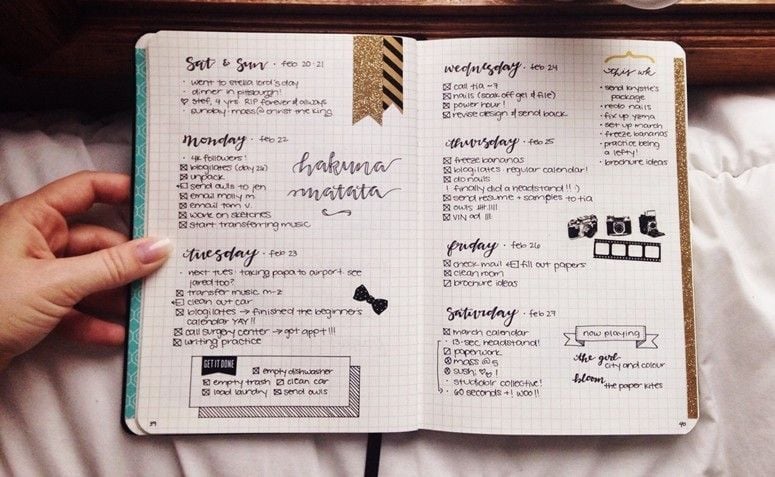 Sat & Sun · feb 20-21
· went to stella lord's day
· dinner in pittsburgh!
♡ stef, 4 yrs. RIP forever & always
· sunday mass @ christ the king
monday · feb 22
· 4k followers!
blogilates (day 26)
unpack
send owls to jen
email molly m.
email tom v.
work on sketches
start transferring music
hakuna
matata
tuesday · feb 23
· next tues: taking papa to airport. see
jared too?
transfer music m-z
clean out car
blogilates → finished the beginners
calendar YAY!!
call surgery center → got appt!!!
writing practice
GET IT DONE
empty dishwasher
empty trash
clean car
load laundry
send owls
39
wednesday · feb 24
call tia
nails (soak off gel & file)
power hour!
revise design & send back
thursday · feb 25
freeze bananas
blogilates: regular calendar!
do nails
! finally did a headstand!! :)
send resume + samples to tia
owls
VIN ad !!!
friday · feb 26
check mail
fill out papers
clean room
brochure ideas
Saturday · feb 27
march calendar
· 13-sec. headstand!
paperwork
mass @ 5
sushi
· studioloir collective!
· 60 seconds +! woo!!
this wk
· send krystle's
package
· redo nails
· fix up yzma
· set up march
· freeze bananas
· practice being
a lefty!
· brochure ideas
now playing
the girl·
city and colour
bloom·
the paper kites
40